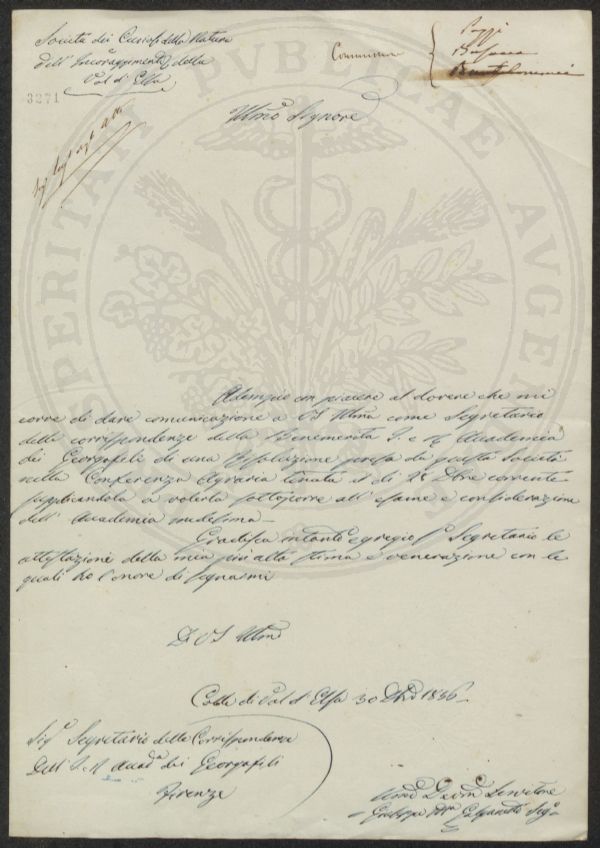 Società dei Curiosi della Natura
dell' Incoraggimento della
Val d' Elsa
3271
Commissione
Illmo Signore
Adempio con piacere al dovere che mi
corre di dare comunicazione a VS Illma come Segretario
delle corrispondenze della Benemerita I. e R. Accademia
dei Georgofili di una Risoluzione presa da questa Società
nella Conferenza Agraria tenuta il dì 28 Dbre corrente
supplicandola a volerla sottoporre all' esame e considerazione
dell' Accademia medesima
Gradisca intanto egregio Sr Segretario le
attestazione della mia più alta stima e venerazione con le
quali ho l'onore di segnarmi
Di VS Illma
Colle di Val d' Elsa 30 Dbre 1836
Sigr Segretario delle Corrispondenze
Dell' I. R. Accadia dei Georgofili
Firenze
Devmo Servitore
Giuseppe Segrio
PVBLICAE
PROSPERITATI
AVGE